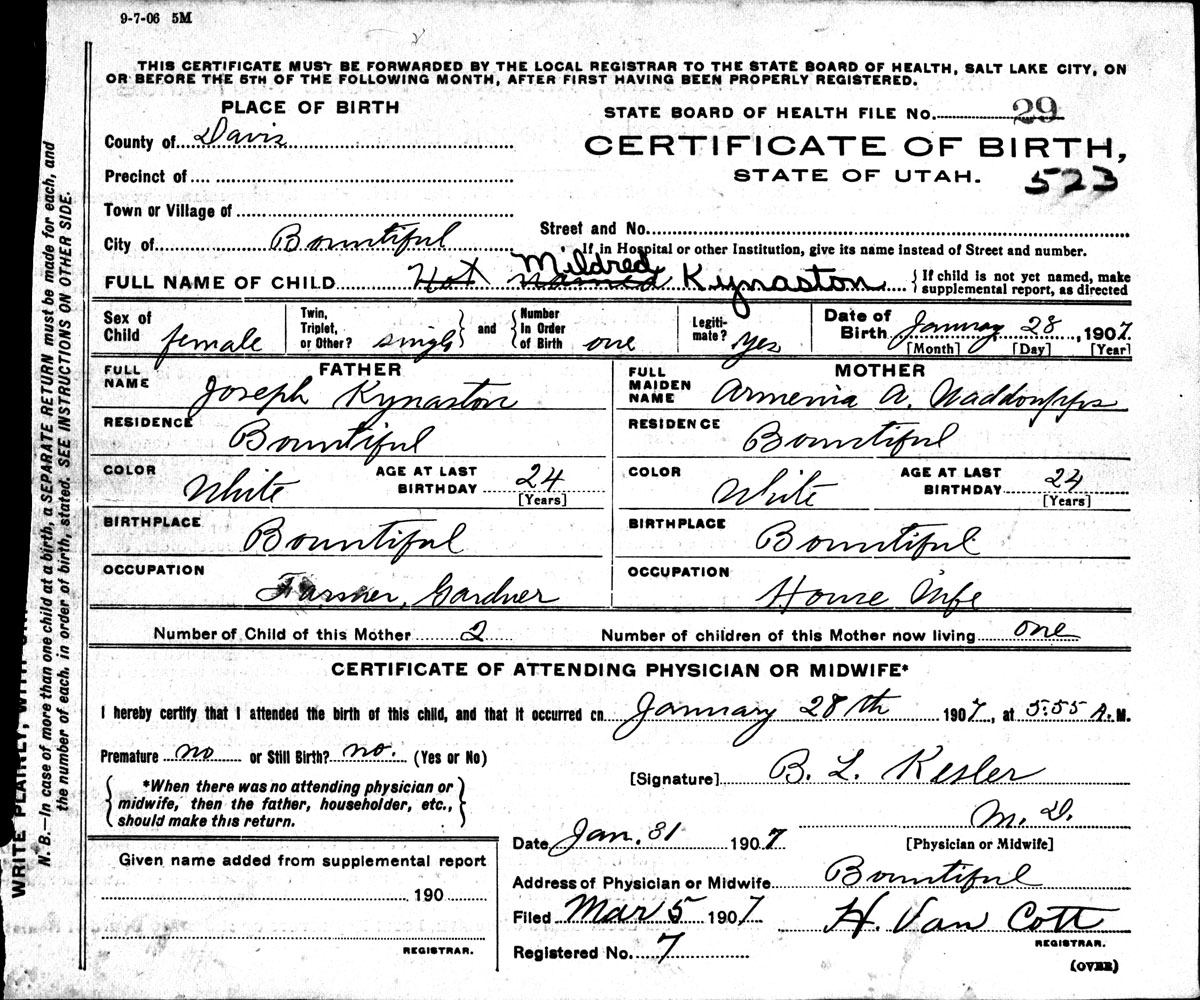 9-7-06 5M
THIS CERTIFICATE MUST BE FORWARDED BY THE LOCAL REGISTRAR TO THE STATE BOARD OF HEALTH, SALT LAKE CITY, ON
OR BEFORE THE 5TH OF THE FOLLOWING MONTH, AFTER FIRST HAVING BEEN PROPERLY REGISTERED.
PLACE OF BIRTH
County of Davis
Precinct of
Town or Village of
City of Bountiful
STATE BOARD OF HEALTH FILE No. 29
CERTIFICATE OF BIRTH,
STATE OF UTAH. 523
Street and No.
If in Hospital or other Institution, give its name instead of Street and number.
FULL NAME OF CHILD Not named Mildred Kynaston
If child is not yet named, make
supplemental report, as directed
Sex of Child female
Twin, Triplet, or Other? single and Number In Order of Birth one
Legiti-mate? yes
Date of Birth January 28, 1907
[Month] [Day] [Year]
FATHER
FULL NAME Joseph Kynaston
RESIDENCE Bountiful
COLOR White AGE AT LAST BIRTHDAY 24 [Years]
BIRTHPLACE Bountiful
OCCUPATION Farmer, Gardner
MOTHER
FULL MAIDEN NAME Armenia A. Waddoupps
RESIDENCE Bountiful
COLOR White AGE AT LAST BIRTHDAY 24 [Years]
BIRTHPLACE Bountiful
OCCUPATION House Wife
Number of Child of this Mother 2 Number of children of this Mother now living one
CERTIFICATE OF ATTENDING PHYSICIAN OR MIDWIFE*
I hereby certify that I attended the birth of this child, and that it occurred on January 28th 1907, at 5:55 A.M.
Premature no or Still Birth? no. (Yes or No)
*When there was no attending physician or
midwife, then the father, householder, etc.,
should make this return.
[Signature] B. L. Kesler
M. D.
[Physician or Midwife]
Date Jan. 31 1907
Address of Physician or Midwife Bountiful
Filed Mar 5 1907 H. Van Cott
REGISTRAR.
Registered No. 7
(OVER)
Given name added from supplemental report
190
REGISTRAR.
WRITE PLAINLY, WITH
N. B.—In case of more than one child at a birth, a SEPARATE RETURN must be made for each, and
the number of each, in order of birth, stated. SEE INSTRUCTIONS ON OTHER SIDE.